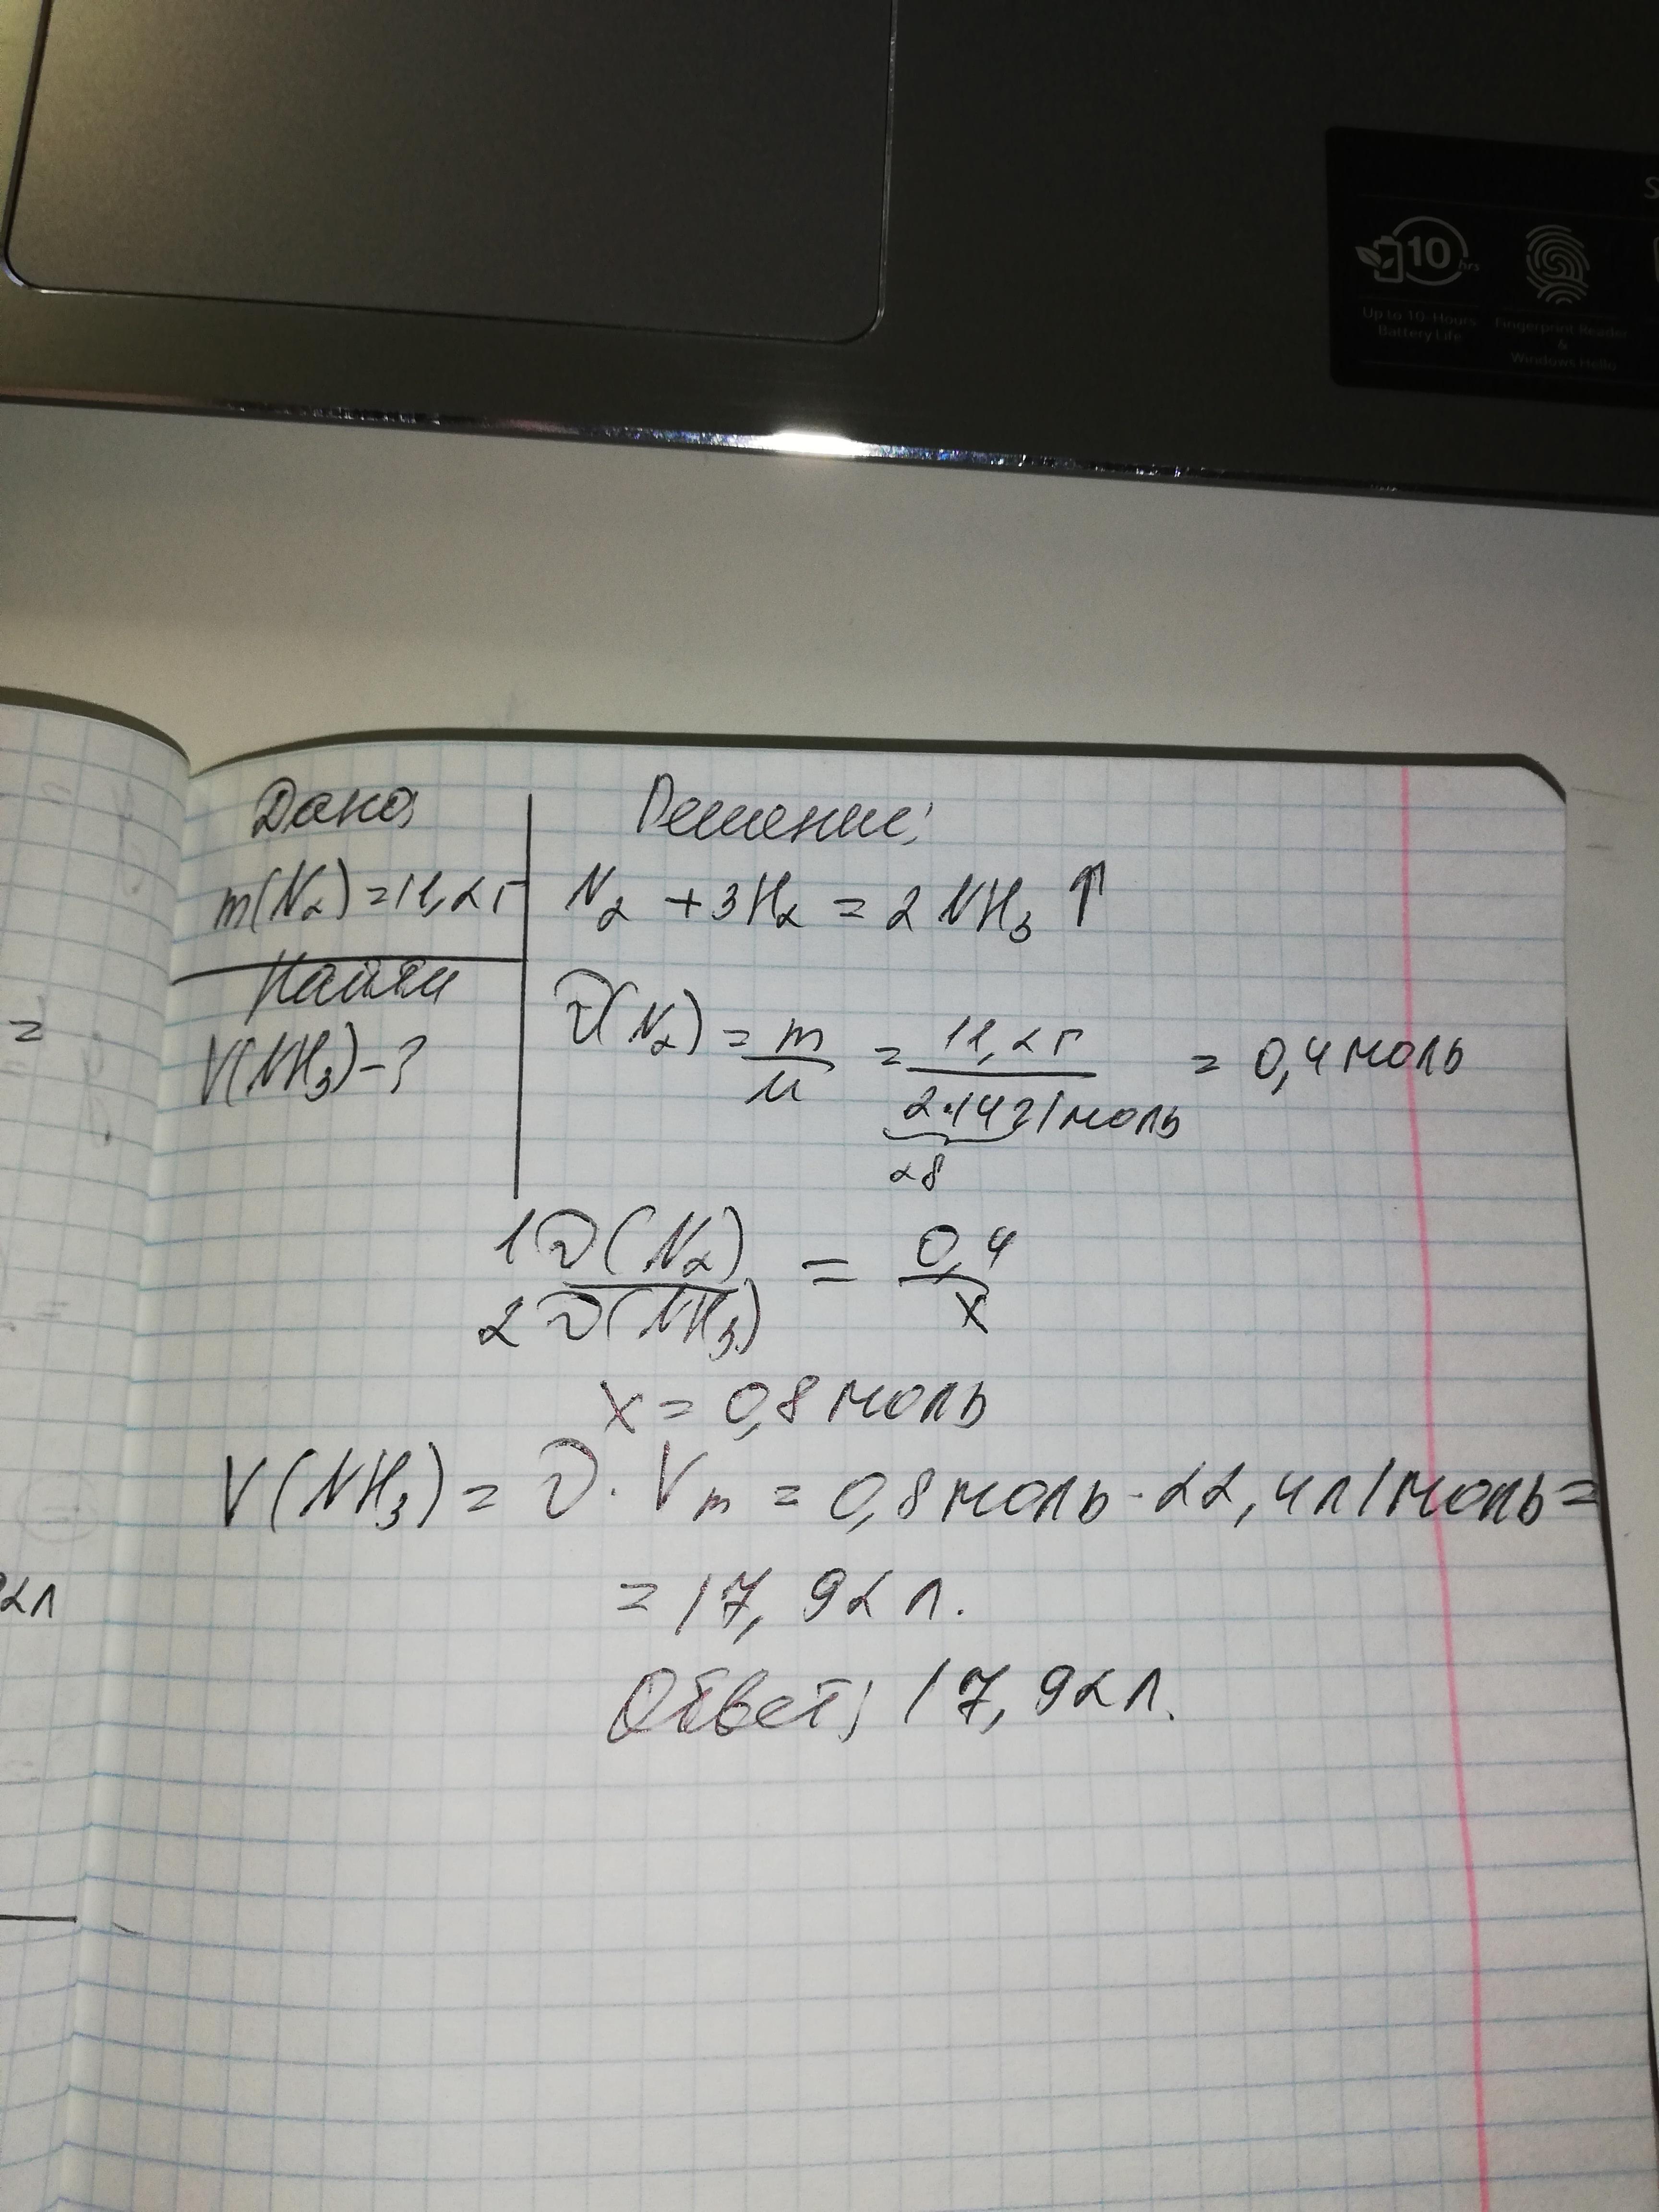 S
10 hrs
Up to 10-Hours
Battery Life
Fingerprint Reader
&
Windows Hello
Дано:
m(N₂)=11,2г
Найти
V(NH₃)-?
Решение:
N₂ + 3H₂ = 2NH₃ ↑
ν(N₂) = m/M = 11,2г / 2·14г/моль = 0,4 моль
28
1ν(N₂) / 2ν(NH₃) = 0,4 / x
x = 0,8 моль
V(NH₃) = ν · Vm = 0,8 моль · 22,4 л/моль =
= 17,92 л.
Ответ: 17,92 л.
=
2л